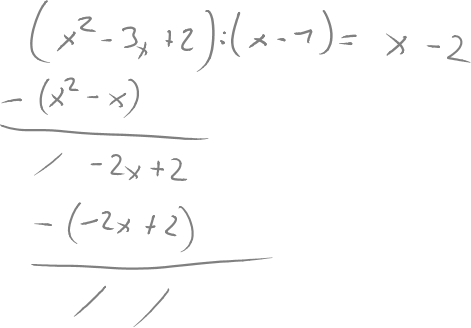 (x² - 3x + 2) : (x - 1) = x - 2
- (x² - x)
/ -2x + 2
- (-2x + 2)
/ /